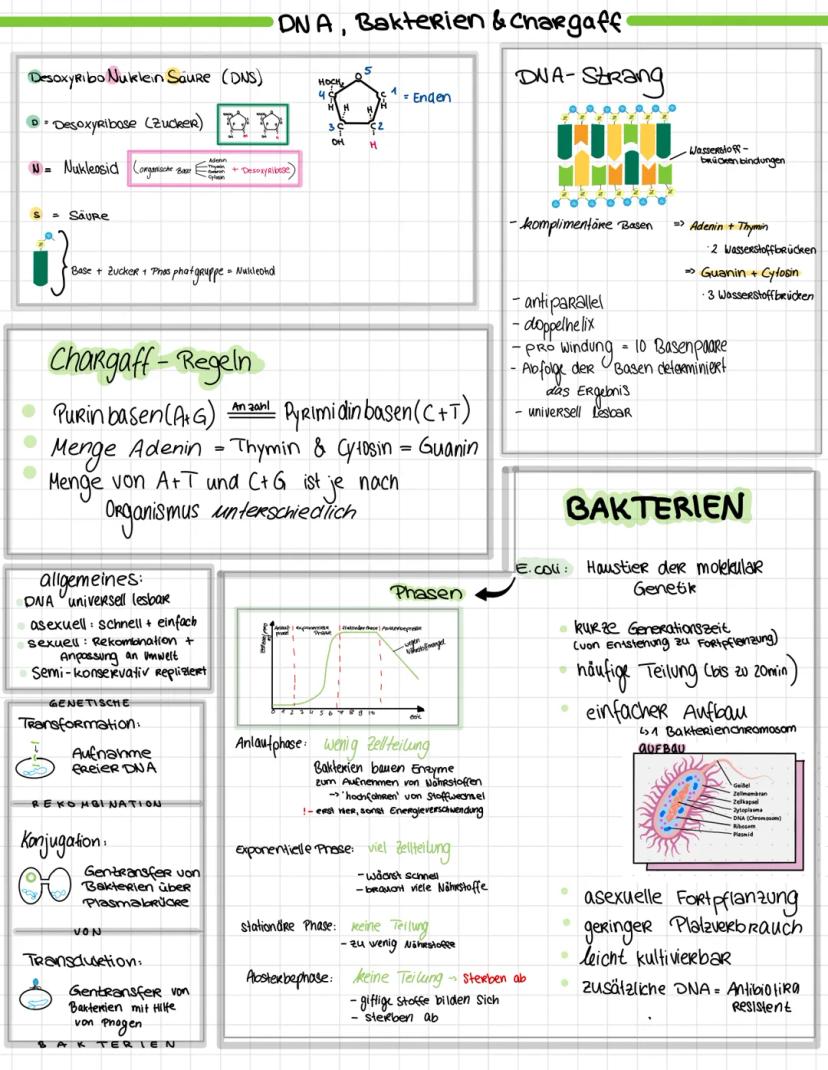 DNA, Bakterien & Chargaff
DesoxyRibo Nuklein Säure (DNS)
D = Desoxyribose (Zucker)
N = Nukleosid (organische Base
Adenin
Thymin
Cytosin
+ Desoxyribose)
S = Säure
Base + Zucker + Phosphatgruppe = Nukleotid
HOCH₂
O
5
4
C
C
1 = Enden
H
H
H
H
3
C
C
2
OH
H
DNA-Strang
Wasserstoff-
brückenbindungen
- komplimentäre Basen => Adenin + Thymin
· 2 Wasserstoffbrücken
=> Guanin + Cytosin
· 3 Wasserstoffbrücken
- antiparallel
- doppelhelix
- pro Windung = 10 Basenpaare
- Abfolge der Basen determiniert
das Ergebnis
- universell lesbar
Chargaff - Regeln
Purinbasen (A+G) Anzahl Pyrimidinbasen (C+T)
Menge Adenin = Thymin & Cytosin = Guanin
Menge von A+T und C+G ist je nach
Organismus unterschiedlich
allgemeines:
DNA universell lesbar
asexuell: schnell + einfach
sexuell: Rekombination +
Anpassung an Umwelt
Semi-konservativ repliziert
GENETISCHE
Transformation:
Aufnahme
freier DNA
REKOMBINATION
Konjugation:
Gentransfer von
Bakterien über
Plasmabrücke
VON
Transduktion:
Gentransfer von
Bakterien mit Hilfe
von Phagen
BAKTERIEN
Phasen
Anlauf-
phase
exponentielle
Phase
stationäre Phase
Absterbephase
wegen
Nährstoffmangel
Zeit
Anlaufphase: wenig Zellteilung
Bakterien bauen Enzyme
zum Aufnehmen von Nährstoffen
-> 'hochfahren' von Stoffwechsel
!- erst hier, sonst Energieverschwendung
Exponentielle Phase: viel Zellteilung
- wächst schnell
- braucht viele Nährstoffe
stationäre Phase: keine Teilung
- zu wenig Nährstoffe
Absterbephase: keine Teilung -> sterben ab
- giftige Stoffe bilden sich
- sterben ab
BAKTERIEN
E.coli: Haustier der molekular
Genetik
kurze Generationszeit
(von Entstehung zu Fortpflanzung)
häufige Teilung (bis zu 20min)
einfacher Aufbau
↳ 1 Bakterienchromosom
AUFBAU
Geißel
Zellmembran
Zellkapsel
Zytoplasma
DNA (Chromosom)
Ribosom
Plasmid
asexuelle Fortpflanzung
geringer Platzverbrauch
leicht kultivierbar
zusätzliche DNA = Antibiotika
resistent